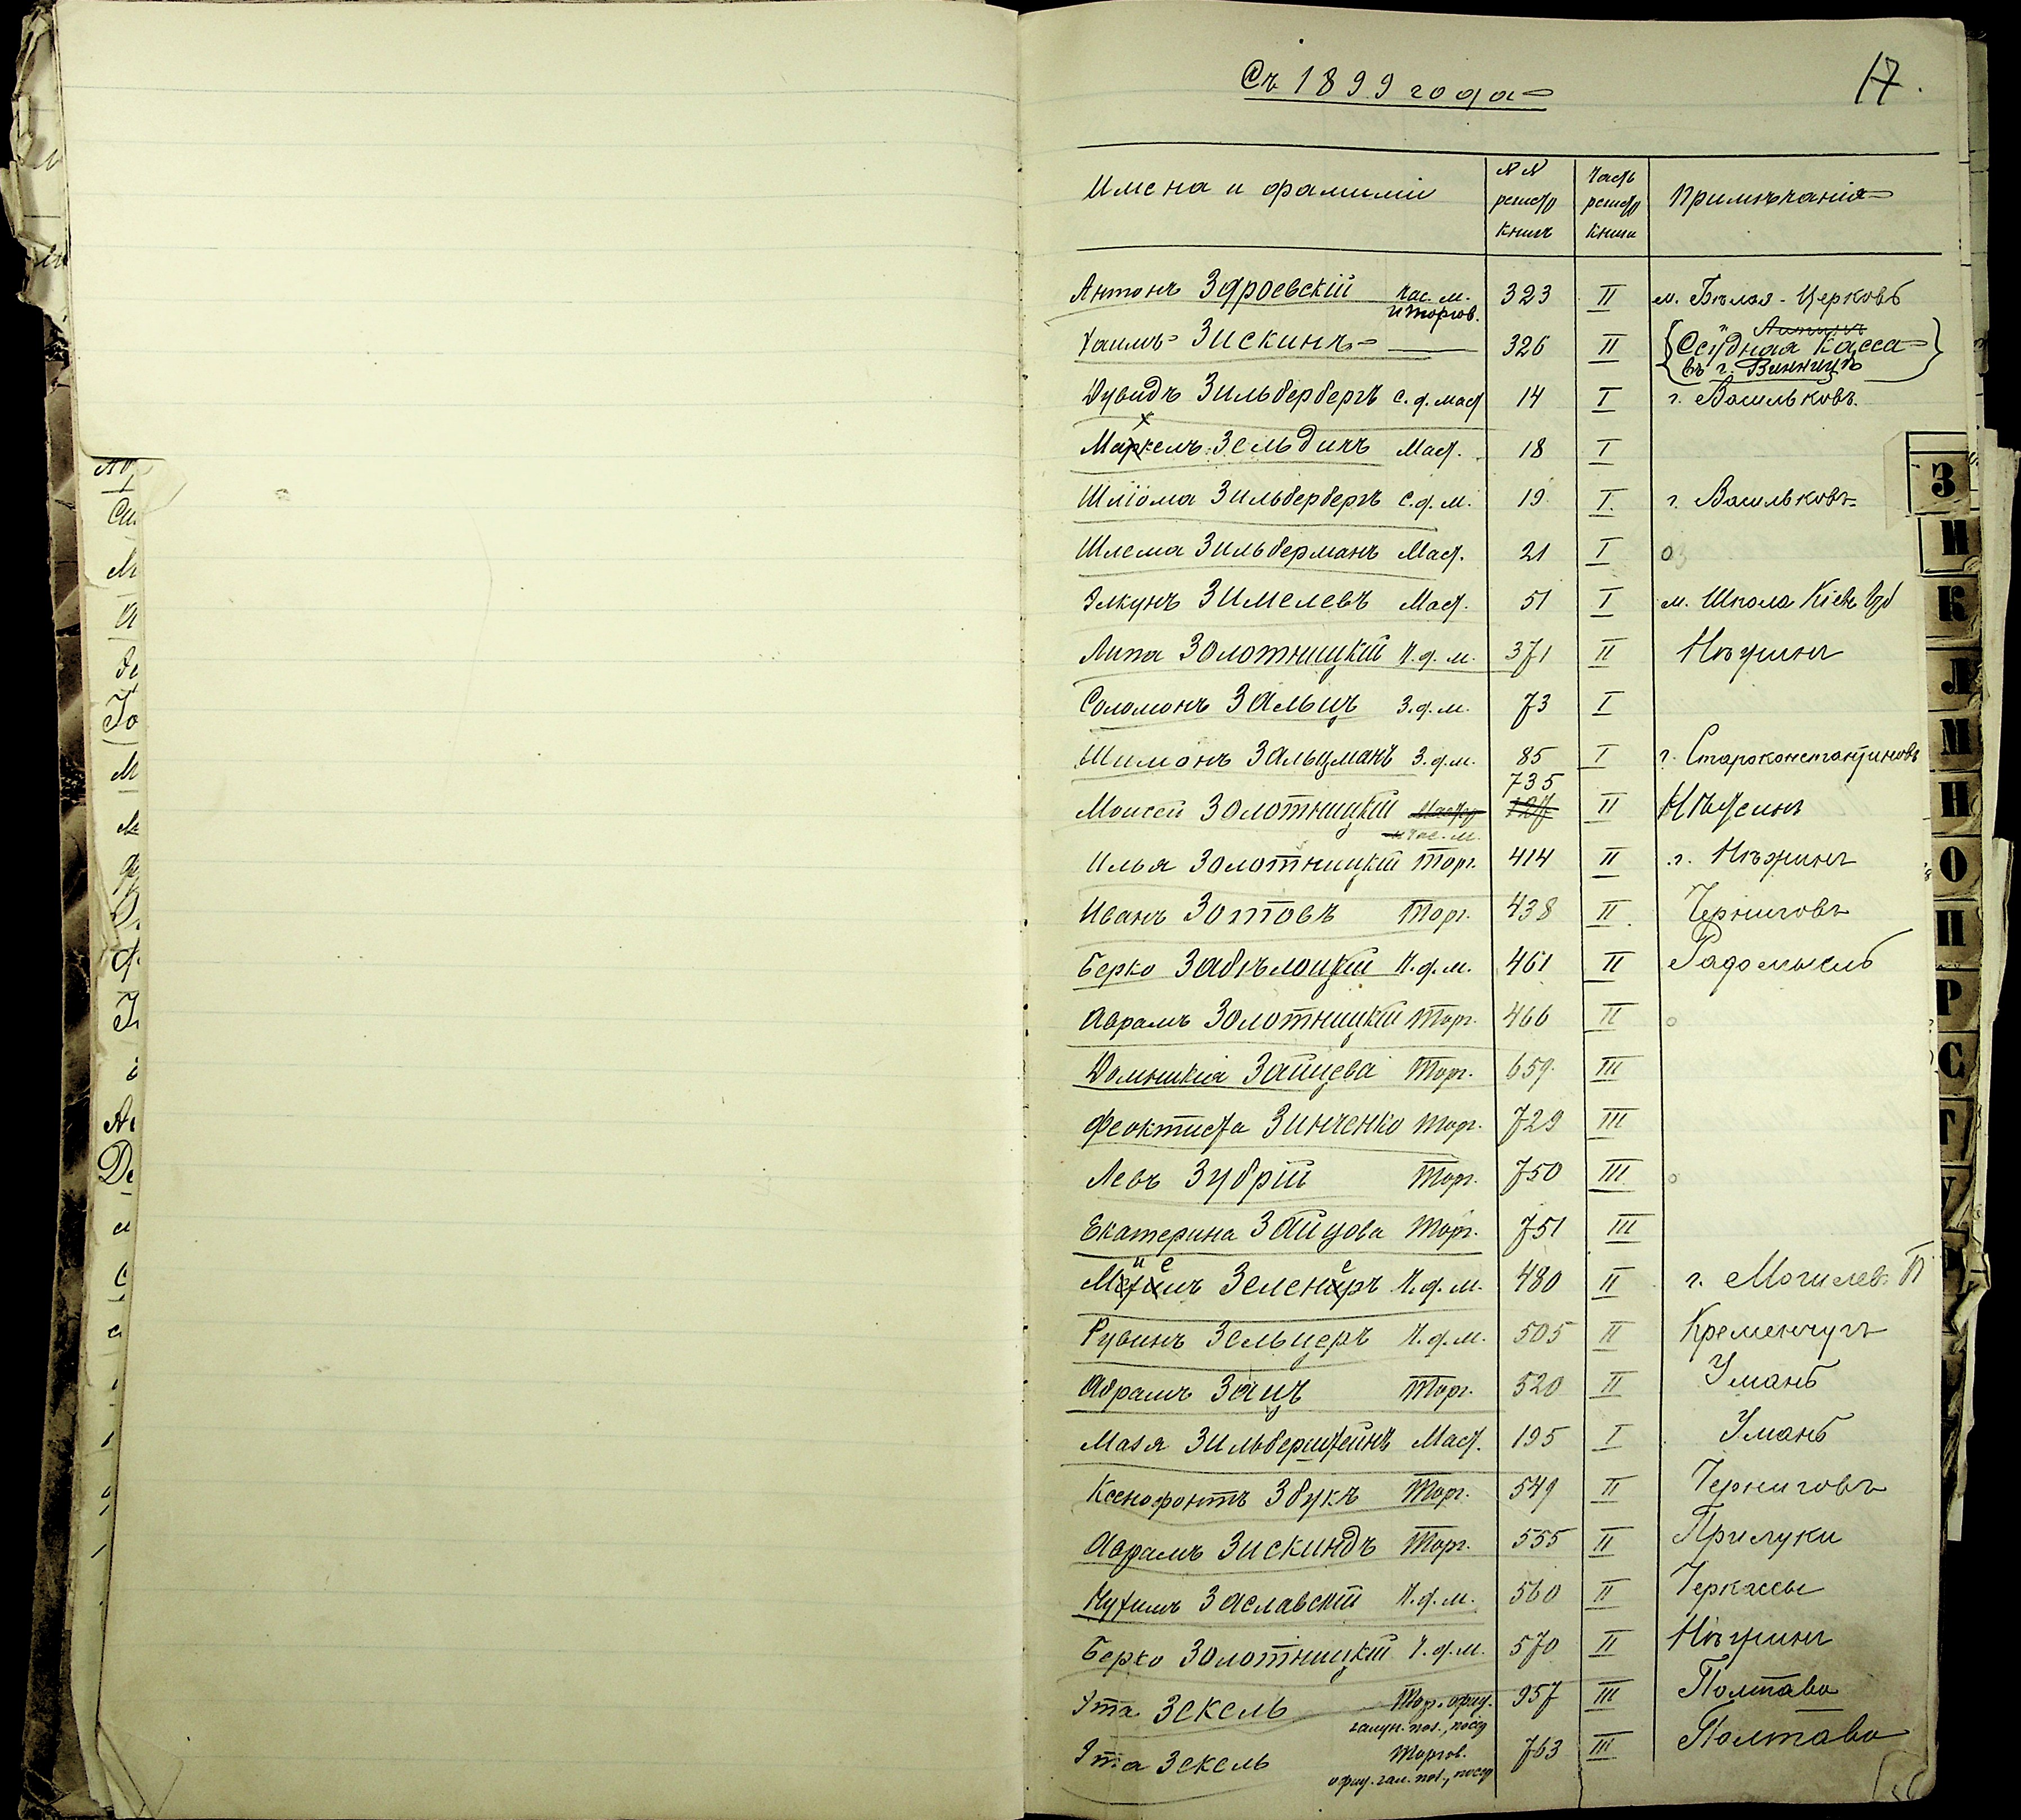 Съ 1899 года
17.
Имена и фамиліи
№№ регистр книгъ
Часть регистр книги
Примѣчанія
Антонъ Здроевскій Час. м. 323 II м. Бѣлая-Церковь
и торгов.
Хаимъ Зискинъ 326 II Ссудная Касса
въ г. Винницѣ
Дувидъ Зильбербергъ с. д. маст 14 I г. Васильковъ.
Маркелъ Зельдинъ Маст. 18 I
Шліома Зильбербергъ с. д. м. 19 I г. Васильковъ
Шлема Зильберманъ Маст. 21 I
Элкунъ Зимелевъ Маст. 51 I м. Шпола Кіев. губ
Липа Золотницкій Ч. д. м. 371 II Нѣжинъ
Соломонъ Зальцъ З. д. м. 73 I
Шимонъ Зальцманъ З. д. м. 85 I г. Староконстантиновъ
735
Моисей Золотницкій II Нѣжинъ
Час. м.
Илья Золотницкій Торг. 414 II г. Нѣжинъ
Иванъ Зотовъ Торг. 438 II Черниговъ
Берко Забѣлоцкій Ч. д. м. 461 II Радомысль
Аврамъ Золотницкій Торг. 466 II
Домникія Зайцева Торг. 659 III
Феоктиста Зинченко Торг. 729 III
Левъ Зубрій Торг. 750 III
Екатерина Зайцова Торг. 751 III
Зеленеръ Ч. д. м. 480 II г. Могилев. П
Рувинъ Зельцеръ Ч. д. м. 505 II Кременчугъ
Абрамъ Зацъ Торг. 520 II Умань
Мазя Зильберштейнъ Маст. 195 I Умань
Ксенофонтъ Збукъ Торг. 549 II Черниговъ
Аврамъ Зискиндъ Торг. 555 II Прилуки
Нухимъ Заславскій Ч. д. м. 560 II Черкассы
Берко Золотницкій Ч. д. м. 570 II Нѣжинъ
Ита Зекель Тор. офиц. 957 III Полтава
галун. пог., посд
Ита Зекель Торгов. 763 III Полтава
офиц. гал. пог., посд
З
И
К
Л
М
Н
О
П
Р
С
Т
У